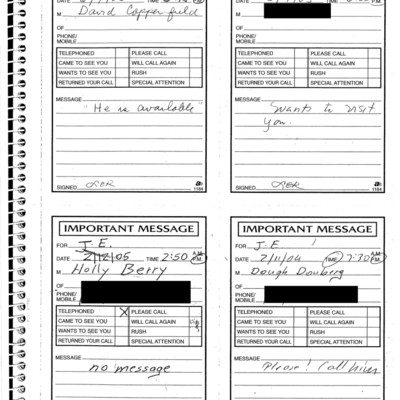 DATE TIME
M David Copperfield
OF
PHONE/
MOBILE
TELEPHONED PLEASE CALL
CAME TO SEE YOU WILL CALL AGAIN
WANTS TO SEE YOU RUSH
RETURNED YOUR CALL SPECIAL ATTENTION
MESSAGE
"He is available"
SIGNED 1184
DATE TIME
M
OF
PHONE/
MOBILE
TELEPHONED PLEASE CALL
CAME TO SEE YOU WILL CALL AGAIN
WANTS TO SEE YOU RUSH
RETURNED YOUR CALL SPECIAL ATTENTION
MESSAGE
Wants to visit
you.
SIGNED 1184
IMPORTANT MESSAGE
FOR J.E.
DATE 2/12/05 TIME 2:50 A.M. P.M.
M Holly Berry
OF
PHONE/
MOBILE
TELEPHONED X PLEASE CALL
CAME TO SEE YOU WILL CALL AGAIN
WANTS TO SEE YOU RUSH
RETURNED YOUR CALL SPECIAL ATTENTION
MESSAGE
no message
IMPORTANT MESSAGE
FOR J.E.
DATE 2/11/04 TIME 7:30 A.M. P.M.
M
OF
PHONE/
MOBILE
TELEPHONED PLEASE CALL
CAME TO SEE YOU WILL CALL AGAIN
WANTS TO SEE YOU RUSH
RETURNED YOUR CALL SPECIAL ATTENTION
MESSAGE
Please! Call